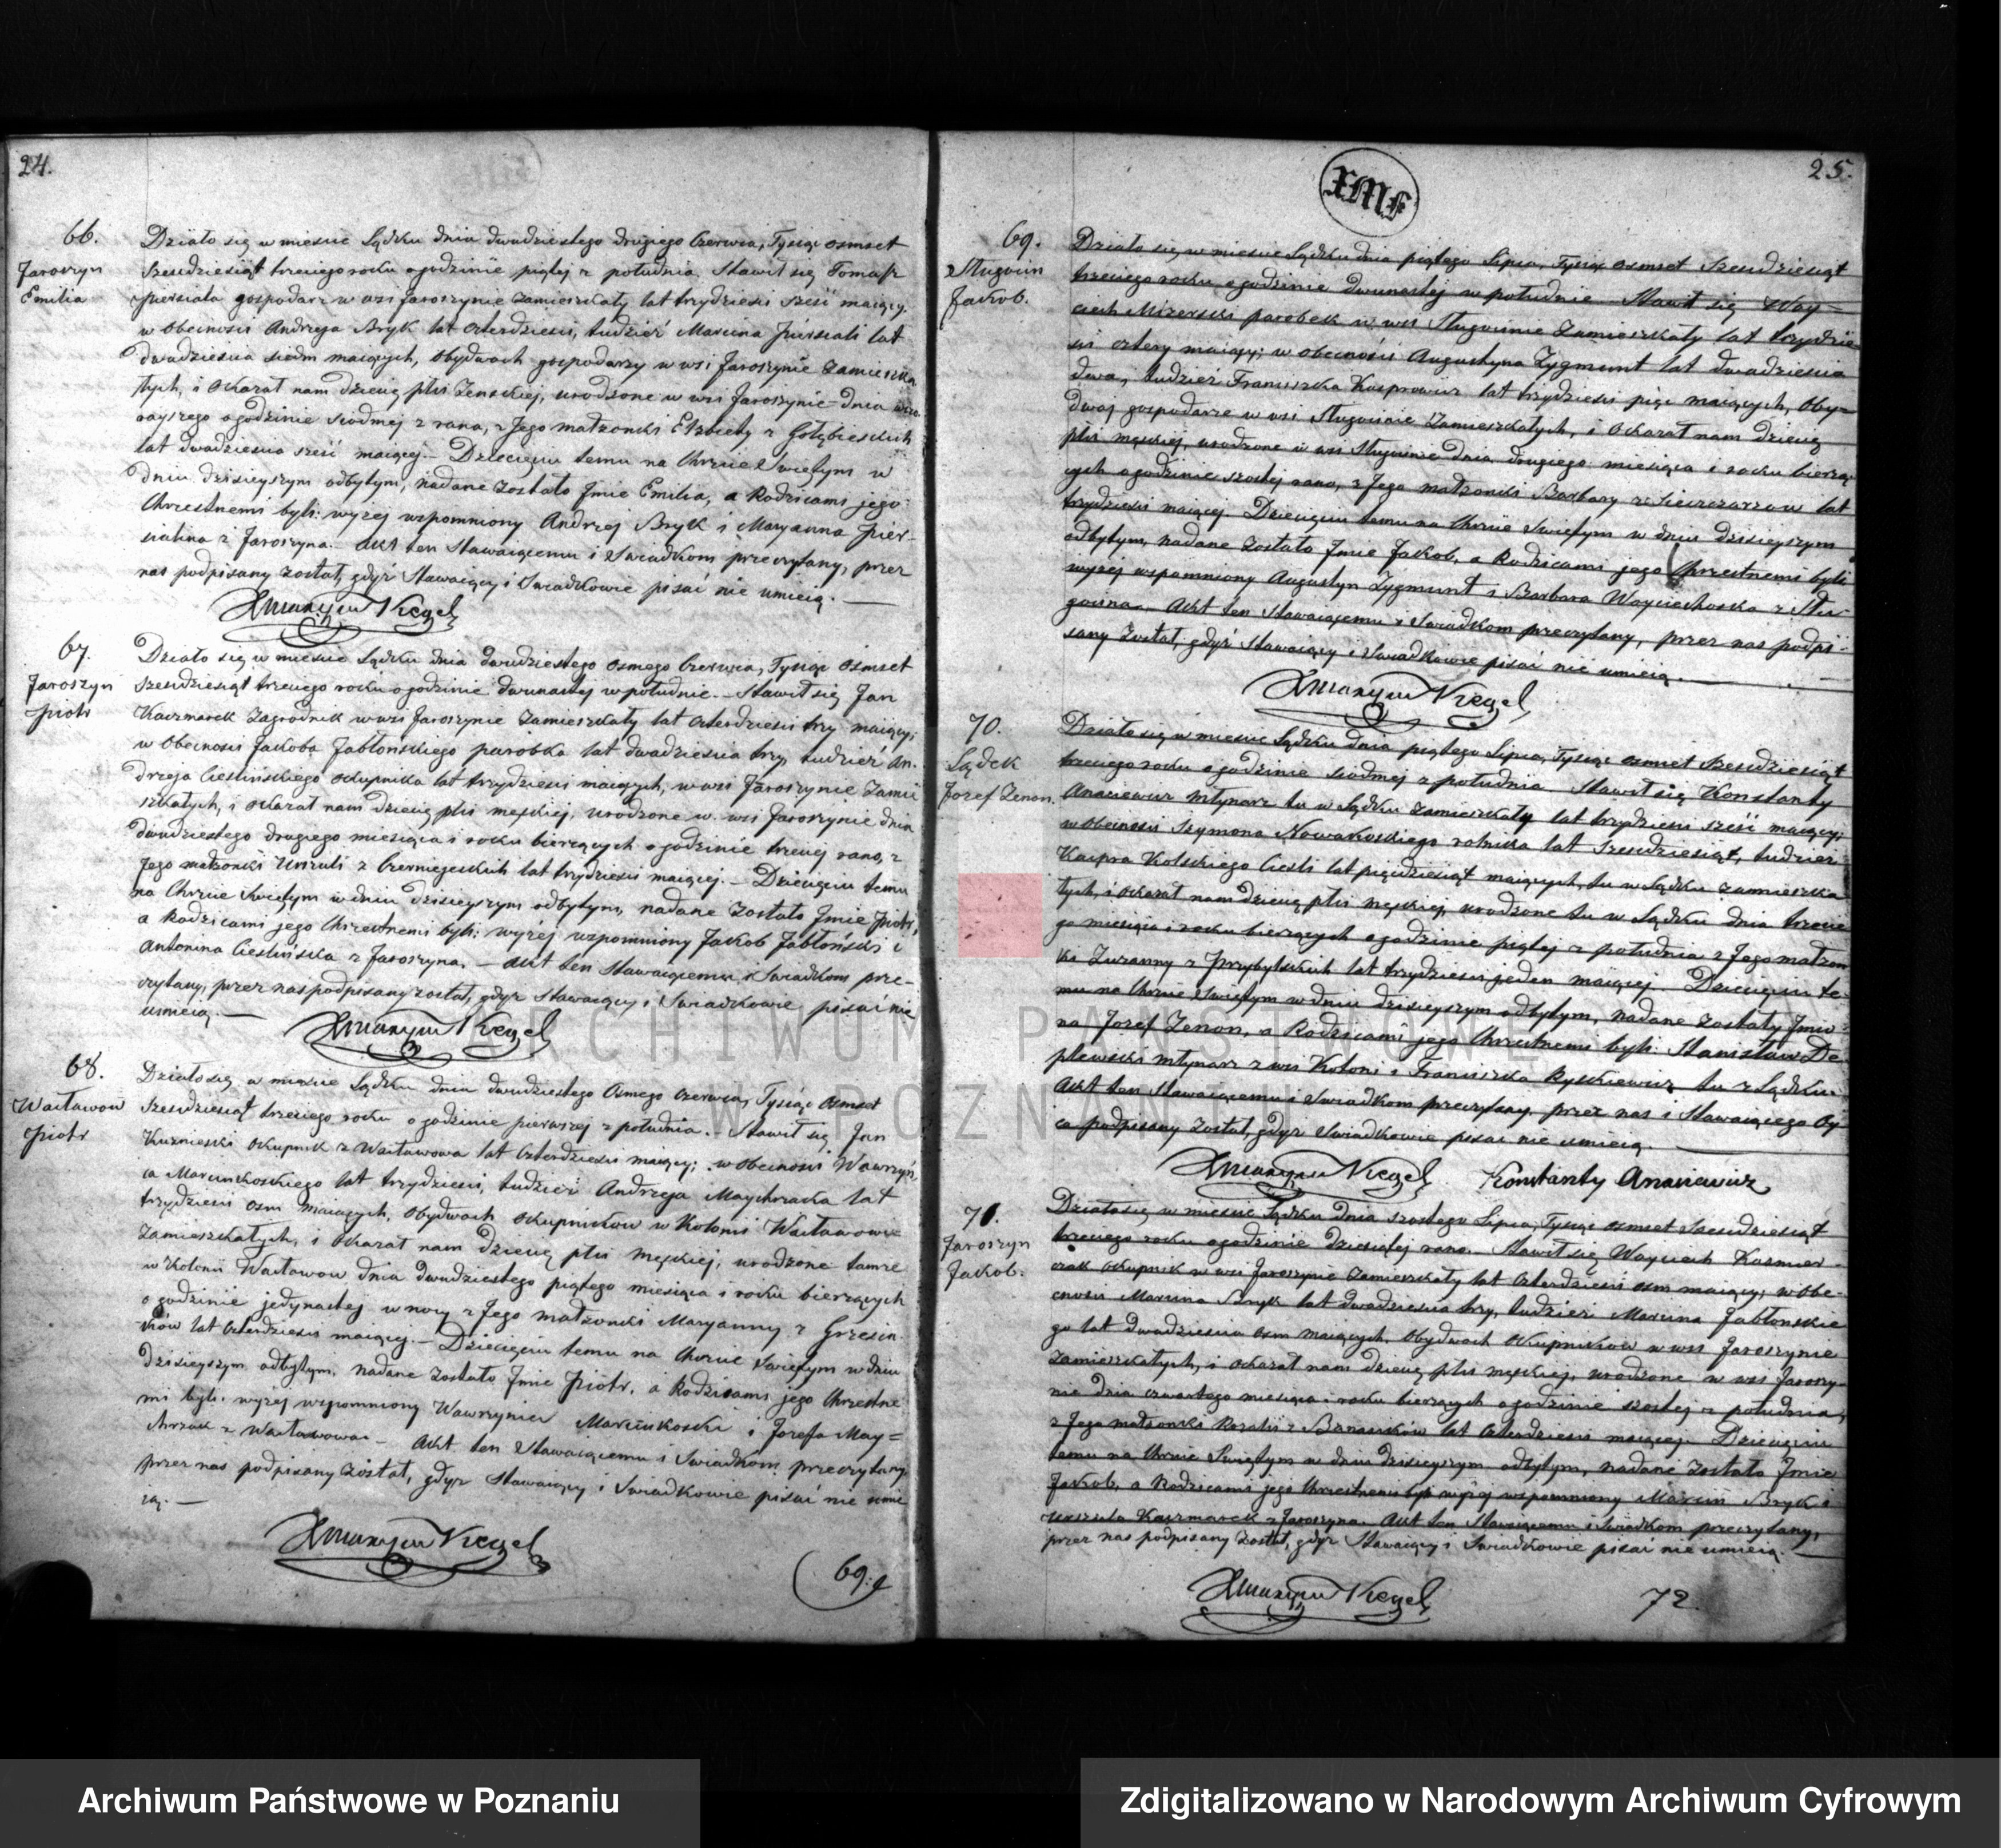 24.
66.
Jaroszyn
Emilia
Działo się w mieście Lądku dnia dwudziestego drugiego Czerwca, Tysiąc osmset
sześćdziesiąt trzeciego roku o godzinie piątej z południa. Stawił się Tomasz
Piersiala gospodarz w wsi Jaroszynie zamieszkały lat trzydzieści sześć maiący,
w obecności Andrzeja Bryk lat czterdzieści, tudzież Marcina Piersiali lat
dwadzieścia siedm maiących, obydwóch gospodarzy w wsi Jaroszynie zamieszka
łych, i okazał nam dziecię płci żeńskiej, urodzone w wsi Jaroszynie dnia wczo
rayszego o godzinie siodmej z rana, z Jego małżonki Elżbiety z Gołębieskich
lat dwadzieścia sześć maiącej. – Dziecięciu temu na Chrzcie Świętym w
dniu dzisieyszym odbytym, nadane zostało Imie Emilia, a Rodzicami jego
Chrzestnemi byli: wyżej wspomniony Andrzej Bryk i Maryanna Pier-
sialina z Jaroszyna. – Akt ten stawaiącemu i świadkom przeczytany, przez
nas podpisany został, gdyż stawaiący i świadkowie pisać nie umieią. —
67.
Jaroszyn
Piotr
Działo się w mieście Lądku dnia dwudziestego osmego Czerwca, Tysiąc osmset
sześćdziesiąt trzeciego roku o godzinie dwunastej w południe. – Stawił się Jan
Kaczmarek zagrodnik w wsi Jaroszynie zamieszkały lat czterdzieści trzy maiący;
w obecności Jakoba Jabłońskiego parobka lat dwadzieścia trzy, tudzież An-
drzeja Cieślińskiego okupnika lat trzydzieści maiących, w wsi Jaroszynie zamie
szkałych, i okazał nam dziecię płci męskiej, urodzone w wsi Jaroszynie dnia
dwudziestego drugiego miesiąca i roku bieżących o godzinie trzeciej rano, z
Jego małżonki Urszuli z Czerniejeskich lat trzydzieści maiącej. – Dziecięciu temu
na Chrzcie Świętym w dniu dzisieyszym odbytym, nadane zostało Imie Piotr,
a Rodzicami jego Chrzestnemi byli: wyżej wspomniony Jakob Jabłoński i
Antonina Cieślińska z Jaroszyna. – Akt ten stawaiącemu i świadkom prze-
czytany, przez nas podpisany został, gdyż stawaiący i świadkowie pisać nie
umieią. —
68.
Wacławow
Piotr
Działo się w mieście Lądku dnia dwudziestego osmego Czerwca, Tysiąc osmset
sześćdziesiąt trzeciego roku o godzinie pierwszej z południa. Stawił się Jan
Kuznieski okupnik z Wacławowa lat czterdzieści maiący; w obecności Wawrzyń
ca Marcinkoskiego lat trzydzieści, tudzież Andrzeja Maychrzaka lat
trzydzieści osm maiących, obydwóch okupników w Kolonii Wacławowie
zamieszkałych, i okazał nam dziecię płci męskiej, urodzone tamże
w Kolonii Wacławow dnia dwudziestego piątego miesiąca i roku bieżących
o godzinie jedynastej w nocy z Jego małżonki Maryanny z Grzesia
ków lat czterdzieści maiącej. – Dziecięciu temu na Chrzcie Świętym w dniu
dzisieyszym odbytym, nadane zostało Imie Piotr, a Rodzicami jego Chrzestne
mi byli: wyżej wspomniony Wawrzyniec Marcinkoski i Jozefa May=
chrzak z Wacławowa – Akt ten stawaiącemu i świadkom przeczytany
przez nas podpisany został, gdyż stawaiący i świadkowie pisać nie umie
ią. —
69.
25.
69.
Sługocin
Jakob.
Działo się w mieście Lądku dnia piątego Lipca, Tysiąc osmset sześćdziesiąt
trzeciego roku o godzinie dwunastej w południe. Stawił się Woy=
ciech Mizerski parobek w wsi Sługocinie zamieszkały lat trzydzie
ści cztery maiący; w obecności Augustyna Zygmunt lat dwadzieścia
dwa, tudzież Franciszka Kasprowicz lat trzydzieści pięć maiących, oby=
dwoj gospodarze w wsi Sługocinie zamieszkałych, i okazał nam dziecię
płci męskiej, urodzone w wsi Sługocinie dnia drugiego miesiąca i roku bieżą-
cych o godzinie szostej rano, z Jego małżonki Barbary z lat
trzydzieści maiącej. Dziecięciu temu na Chrzcie Świętym w dniu dzisieyszym
odbytym, nadane zostało Imie Jakob, a Rodzicami jego Chrzestnemi byli
wyżej wspomniony Augustyn Zygmunt i Barbara Woyciechoska z Słu-
gocina. Akt ten stawaiącemu i świadkom przeczytany, przez nas podpi-
sany został, gdyż stawaiący i świadkowie pisać nie umieią. —
70.
Lądek
Jozef Zenon.
Działo się w mieście Lądku dnia piątego Lipca, Tysiąc osmset sześćdziesiąt
trzeciego roku o godzinie siodmej z południa. Stawił się Konstanty
Ananiewicz młynarz tu w Lądku zamieszkały lat trzydzieści sześć maiący;
w obecności Szymona Nowakoskiego rolnika lat sześćdziesiąt, tudzież
Kacpra Kolskiego Cieśli lat pięćdziesiąt maiących, tu w Lądku zamieszka
łych, i okazał nam dziecię płci męskiej, urodzone tu w Lądku dnia trzecie
go miesiąca i roku bieżących o godzinie piątej z południa z Jego małżon
ki Zuzanny z Przybylskich lat trzydzieści jeden maiącej. Dziecięciu te-
mu na Chrzcie Świętym w dniu dzisieyszym odbytym, nadane zostały Imio
na Jozef Zenon, a Rodzicami jego Chrzestnemi byli: Stanisław De
plewski młynarz z wsi Kolonii i Franciszka Ryszkiewicz tu z Lądku.
Akt ten stawaiącemu i świadkom przeczytany, przez nas i stawaiącego Oy
ca podpisany został, gdyż świadkowie pisać nie umieią. —
Konstanty Ananiewicz
71.
Jaroszyn
Jakob.
Działo się w mieście Lądku dnia szostego Lipca, Tysiąc osmset sześćdziesiąt
trzeciego roku o godzinie dziesiątej rano. Stawił się Woyciech Kazmier-
czak okupnik w wsi Jaroszynie zamieszkały lat czterdzieści osm maiący; w obe-
cności Marcina Bryk lat dwadzieścia trzy, tudzież Marcina Jabłońskie
go lat dwadzieścia osm maiących, obydwóch okupników w wsi Jaroszynie
zamieszkałych, i okazał nam dziecię płci męskiej, urodzone w wsi Jaroszy-
nie dnia czwartego miesiąca i roku bieżących o godzinie szostej z południa,
z Jego małżonki Rozalii z Banasików lat czterdzieści maiącej. Dziecięciu
temu na Chrzcie Świętym w dniu dzisieyszym odbytym, nadane zostało Imie
Jakob, a Rodzicami jego Chrzestnemi byli wyżej wspomniony Marcin Bryk i
Urszula Kaczmarek z Jaroszyna. Akt ten stawaiącemu i świadkom przeczytany,
przez nas podpisany został, gdyż stawaiący i świadkowie pisać nie umieią. —
72.
ARCHIWUM PAŃSTWOWE
W POZNANIU
Archiwum Państwowe w Poznaniu
Zdigitalizowano w Narodowym Archiwum Cyfrowym